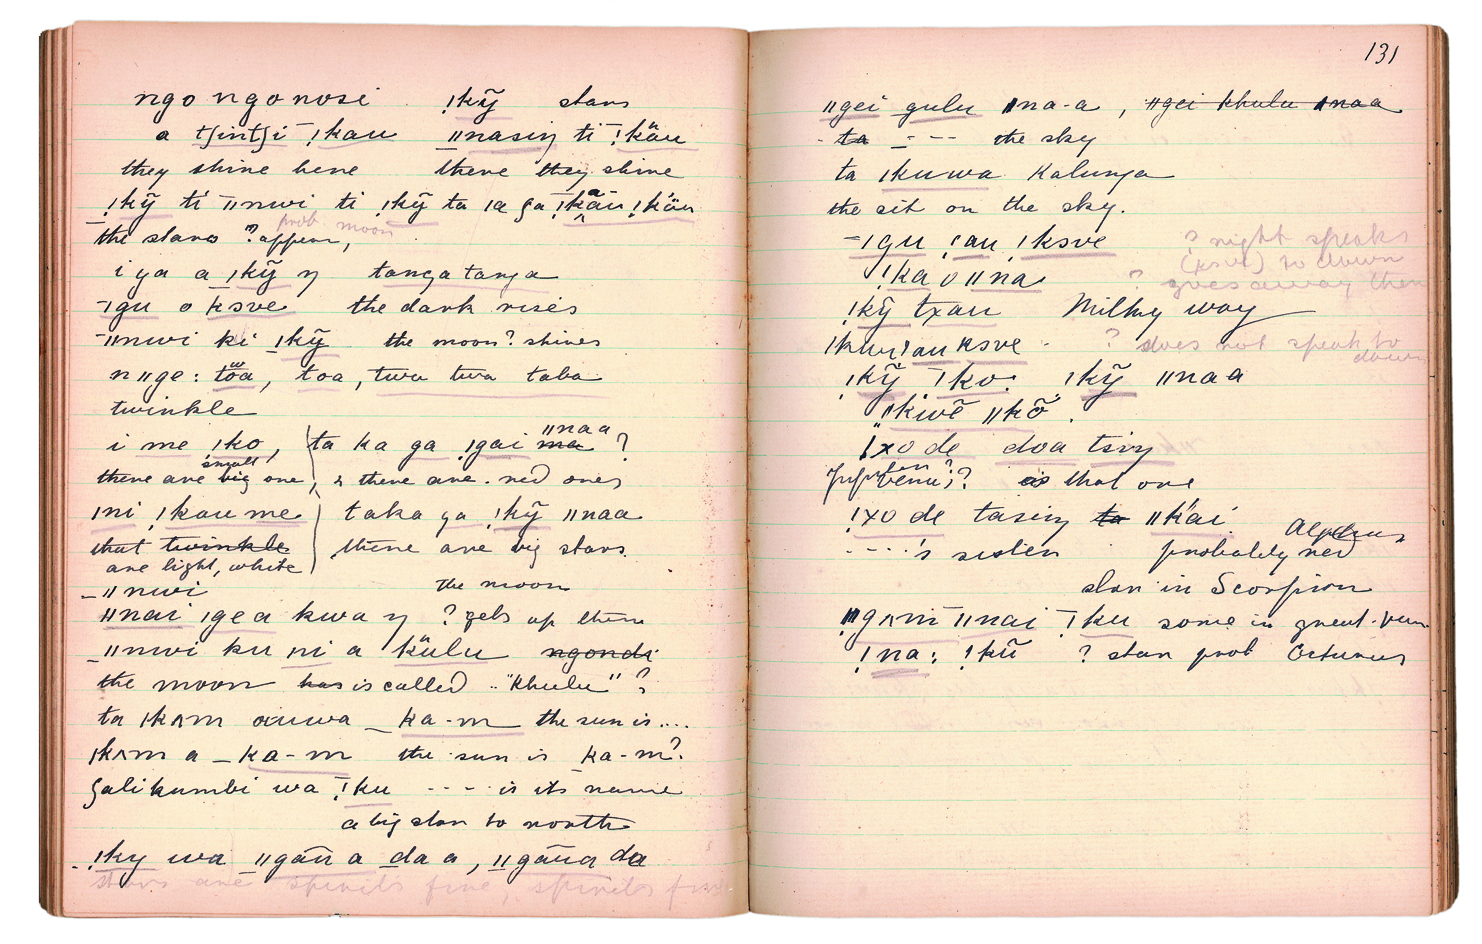 ngongonosi !kỹ stars
a tʃintʃi !kau ǁnasiŋ ti !käu
they shine here there they shine
!kỹ ti ǁnwi ti !kỹ ta ɩa ga !käu !käu
prob. moon
the stars ? appear,
i ya a !kỹ ŋ tanga tanga
ǀgu o ksve the dark rises
ǁnwi ki !kỹ the moon? shines
nǁge: töa, toa, twa twa taba
twinkle
i me !ko, ta ka ga !gai ma ǁnaa ?
there are big small one, & there are . red ones
ǀni !kau me taka ga !kỹ ǁnaa
that twinkle there are big stars.
are light, white
ǁnwi the moon
ǁnai ǀgea kwa ŋ ? gets up then
ǁnwi ku ni a külu ngondi
the moon has is called "khulu" ?
ta ǀkʌm auwa ka-m the sun is....
ǀkʌm a ka-m the sun is ka-m?
galikumbi wa !ku - - - is its name
a big star to north
!ky wa ǁgãu a daa, ǁgãua da
stars are spirits fire, spirits fire
131
ǁgei gulu ǁna-a, ǁgei khulu ǁnaa
ta - - - the sky
ta ǀkuwa Kalunga
the sit on the sky.
ǀgu !au !ksve ? night speaks
(ksve) to dawn
!ka o ǁna ? goes away then
!kỹ txau Milky way
ǀkhui!au ksve - ? does not speak to
dawn
!kỹ !ko: !kỹ ǁnaa
ǁkiwẽ ǁkõ.
!xo de doa tsiŋ
Jupiter ?; Venus ? as that one
!xo de tasiŋ ta ǁkai
- - - -'s sister probably red
star in Scorpion
ǁgʌni ǁnai !ku some in great
!na: !kũ ? star prob Octurus